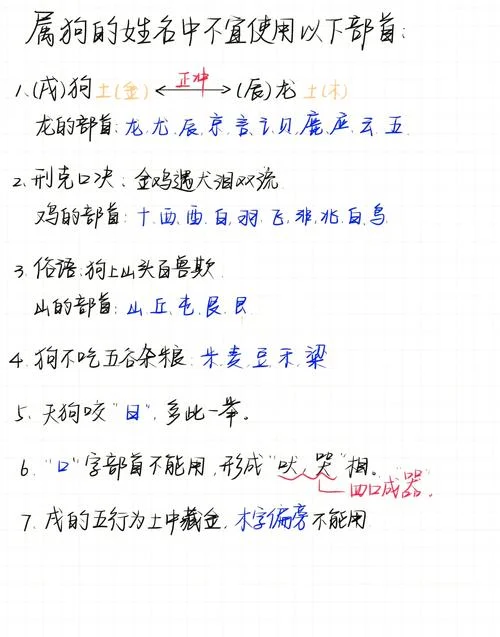 属狗的姓名中不宜使用以下部首:
1、(戌)狗土(金) ←正冲→ (辰)龙 土(木)
龙的部首:龙、尤、辰、京、言、讠、贝、鹿、庭、云、五
2、刑克口决:金鸡遇犬泪双流
鸡的部首:十、西、酉、白、羽、飞、非、兆、自、鸟
3、俗语:狗上山头百兽欺
山的部首:山、丘、屯、艮、良
4、狗不吃五谷杂粮:米、麦、豆、禾、粱
5、天狗咬“日”,多此一举。
6、“口”字部首不能用,形成“吠、哭”相。
四口成器.
7、戌的五行为土中藏金,木字偏旁不能用